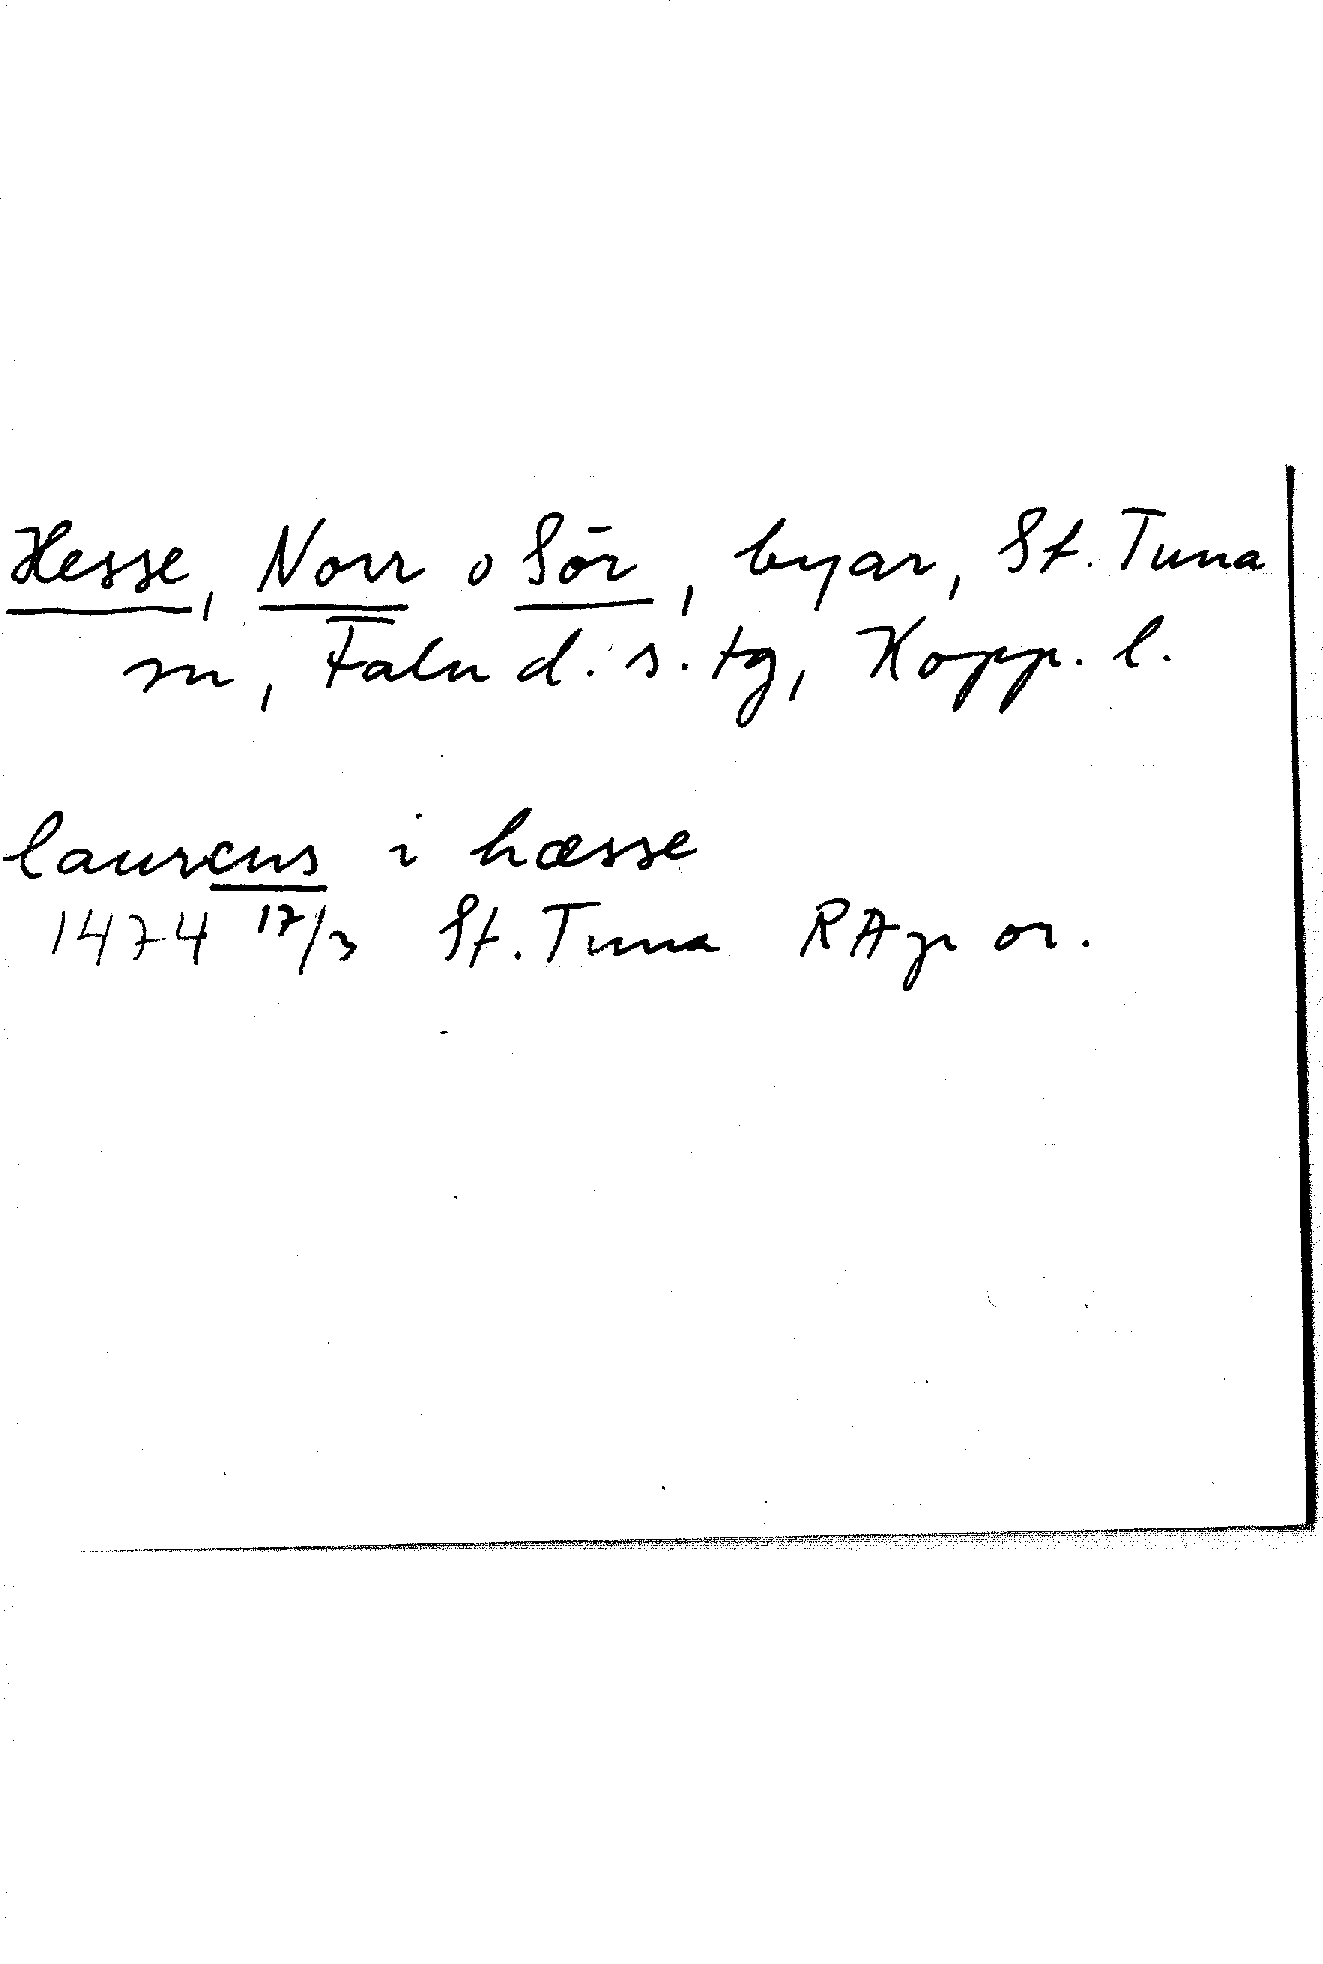 Hesse, Norr o Sör, byar, St. Tuna
sn, Falu d. s. tg, Kopp. l.
laurens i hæsse
1474 17/3 St. Tuna RAp or.